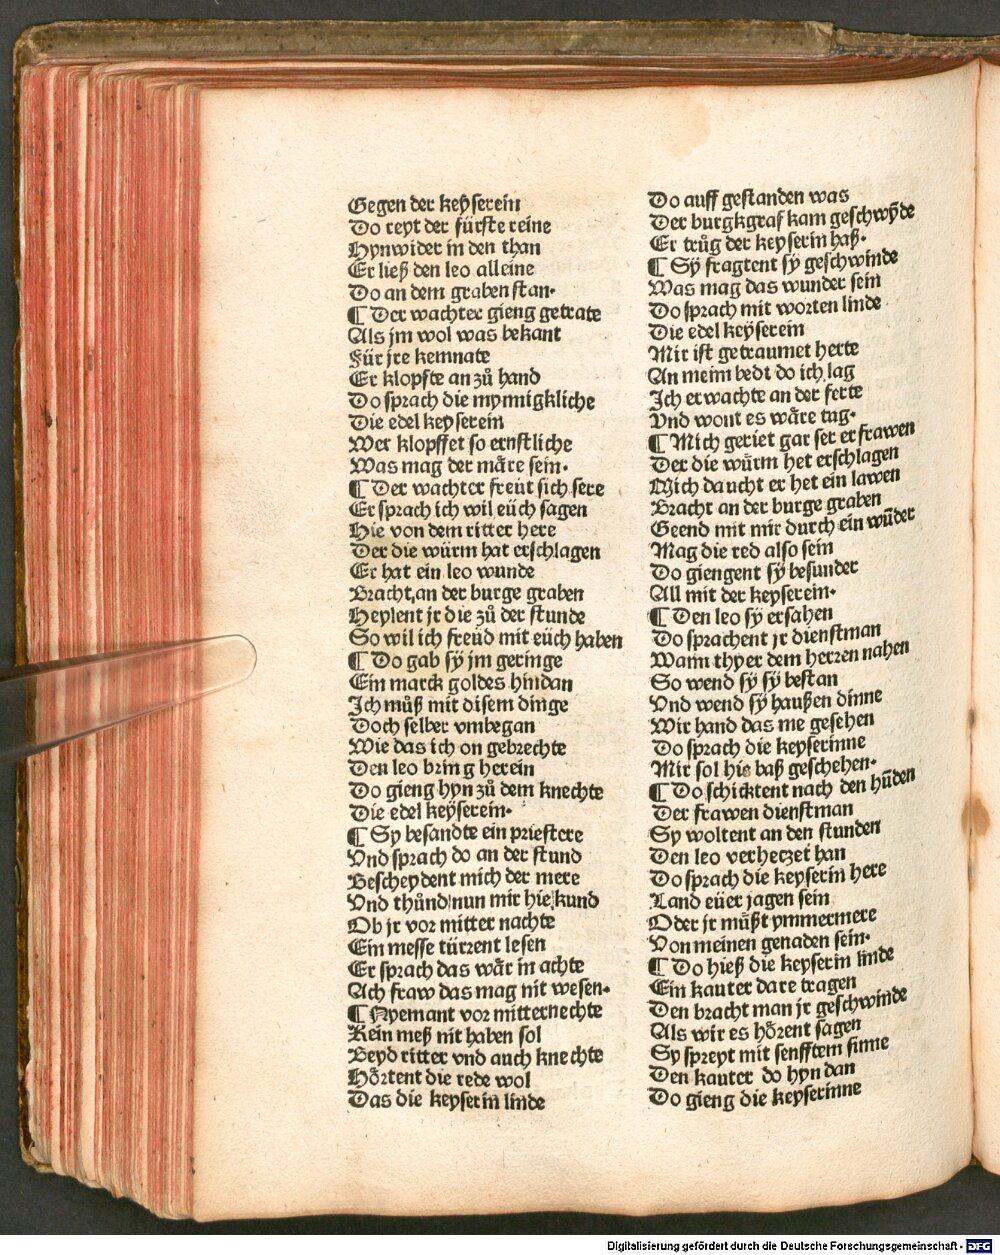 Gegen der keÿserein
Do reyt der fürste reine
Hynwider in den than
Er ließ den leo alleine
Do an dem graben stan·
¶ Der wachter gieng getrate
Als jm wol was bekant
Für jre kemnate
Er klopfte an zů hand
Do sprach die mynnigkliche
Die edel keyserein
Wer klopffet so ernstliche
Was mag der märe sein·
¶ Der wachter freüt sich sere
Er sprach ich wil eüch sagen
Hie von dem ritter here
Der die würm hat erschlagen
Er hat ein leo wunde
Bracht an der burge graben
Heylent jr die zů der stunde
So wil ich freüd mit eüch haben
¶ Do gab sÿ jm geringe
Ein marck goldes hindan
Ich můß mit disem dinge
Doch selber vmbegan
Wie das ich on gebrechte
Den leo bring herein
Do gieng hyn zů dem knechte
Die edel keÿserein·
¶ Sy besandte ein priestere
Vnd sprach do an der stund
Bescheydent mich der mere
Vnd thůnd nun mir hie kund
Ob jr vor mitter nachte
Ein messe türrent lesen
Er sprach das wär in achte
Ach fraw das mag nit wesen·
¶ Nyemant vor mitternechte
Kein meß nit haben sol
Beyd ritter vnd auch knechte
Hörtent die rede wol
Das die keyserin linde
Do auff gestanden was
Der burgkgraf kam geschwÿde
Er trůg der keyserin haß·
¶ Sÿ fragtent sÿ geschwinde
Was mag das wunder sein
Do sprach mit worten linde
Die edel keÿserein
Mir ist getraumet herte
An meim bedt do ich lag
Ich erwachte an der ferte
Vnd wont es wäre tag·
¶ Mich geriet gar ser erfrawen
Der die würm het erschlagen
Mich daucht er het ein lawen
Bracht an der burge graben
Geend mit mir durch ein wūder
Mag die red also sein
Do giengent sÿ besunder
All mit der keyserein·
¶ Den leo sÿ ersahen
Do sprachent jr dienstman
Wann thyer dem herren nahen
So wend sÿ sÿ bestan
Vnd wend sÿ haußen dinne
Wir hand das me gesehen
Do sprach die keyserinne
Mir sol hie baß geschehen·
¶ Do schicktent nach den hūden
Der frawen dienstman
Sy woltent an den stunden
Den leo verhetzet han
Do sprach die keyserin here
Land eüer jagen sein
Oder jr müßt ymmermere
Von meinen genaden sein·
¶ Do hieß die keyserin linde
Ein kauter dare tragen
Den bracht man jr geschwinde
Als wir es hörent sagen
Sy spreyt mit senfftem sinne
Den kauter do hyn dan
Do gieng die keyserinne
Digitalisierung gefördert durch die Deutsche Forschungsgemeinschaft - DFG